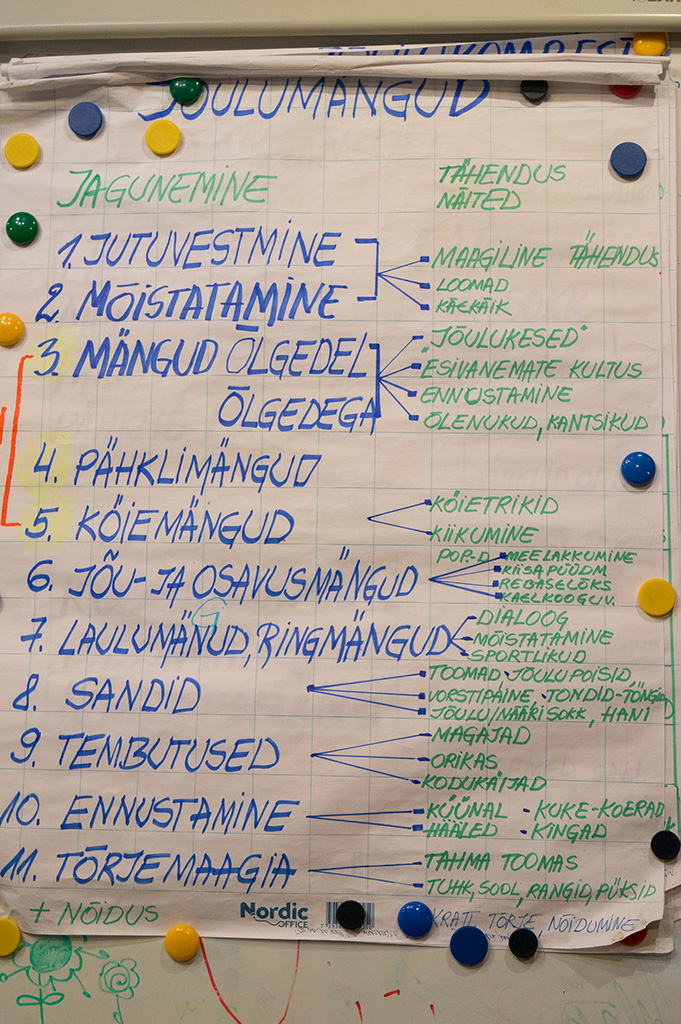 JÕULUMÄNGUD
JAGUNEMINE
TÄHENDUS
NÄITED
1. JUTUVESTMINE
MAAGILINE TÄHENDUS
2. MÕISTATAMINE
LOOMAD
KÄEKÄIK
3. MÄNGUD ÕLGEDEL
ÕLGEDEGA
"JÕULUKESED"
"ESIVANEMATE KULTUS
ENNUSTAMINE
ÕLENUKUD, KANTSIKUD
4. PÄHKLIMÄNGUD
5. KÖIEMÄNGUD
KÖIETRIKID
KIIKUMINE
6. JÕU- JA OSAVUSMÄNGUD
POP.-D
MEELAKKUMINE
KIISAPÜÜDM.
REBASELÕKS
KAELKOOGUV.
7. LAULUMÄNUD, RINGMÄNGUD
G
DIALOOG
MÕISTATAMINE
SPORTLIKUD
8. SANDID
TOOMAD JÕULUPOISID
VORSTIPAINE TONDID-TÕNGID
JÕULU/NÄÄRISOKK, HANI
9. TEMBUTUSED
MAGAJAD
ORIKAS
KODUKÄIJAD
10. ENNUSTAMINE
KÜÜNAL KUKE-KOERAD
HÄÄLED KINGAD
11. TÕRJEMAAGIA
TAHMA TOOMAS
TUHK, SOOL, RANGID, PÜKSID
+ NÕIDUS
KRATT TÕRJE, NÕIDUMINE
Nordic
OFFICE